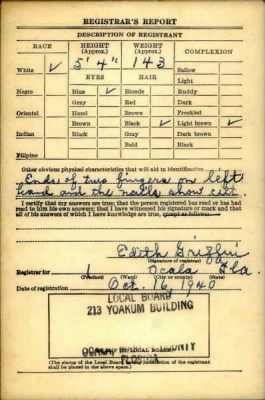 REGISTRAR'S REPORT
DESCRIPTION OF REGISTRANT
RACE HEIGHT (Approx.) WEIGHT (Approx.) COMPLEXION
White ✓ 5' 4" 143 Sallow
EYES HAIR Light
Negro Blue ✓ Blonde Ruddy
Gray Red Dark
Oriental Hazel Brown Freckled
Brown Black ✓ Light brown ✓
Indian Black Gray Dark brown
Bald Black
Filipino
Other obvious physical characteristics that will aid in identification
Ends of two fingers on left
hand and the nails show cut.
I certify that my answers are true; that the person registered has read or has
read to him his own answers; that I have witnessed his signature or mark and that
all of his answers of which I have knowledge are true, except as follows:
Edith Griffin
(Signature of registrar)
Registrar for 1 Ocala Fla.
(Precinct) (Ward) (City or county) (State)
Date of registration Oct. 16, 1940
LOCAL BOARD
213 YOAKUM BUILDING
FLORIDA
(The stamp of the Local Board having jurisdiction of the registrant
shall be placed in the above space.)